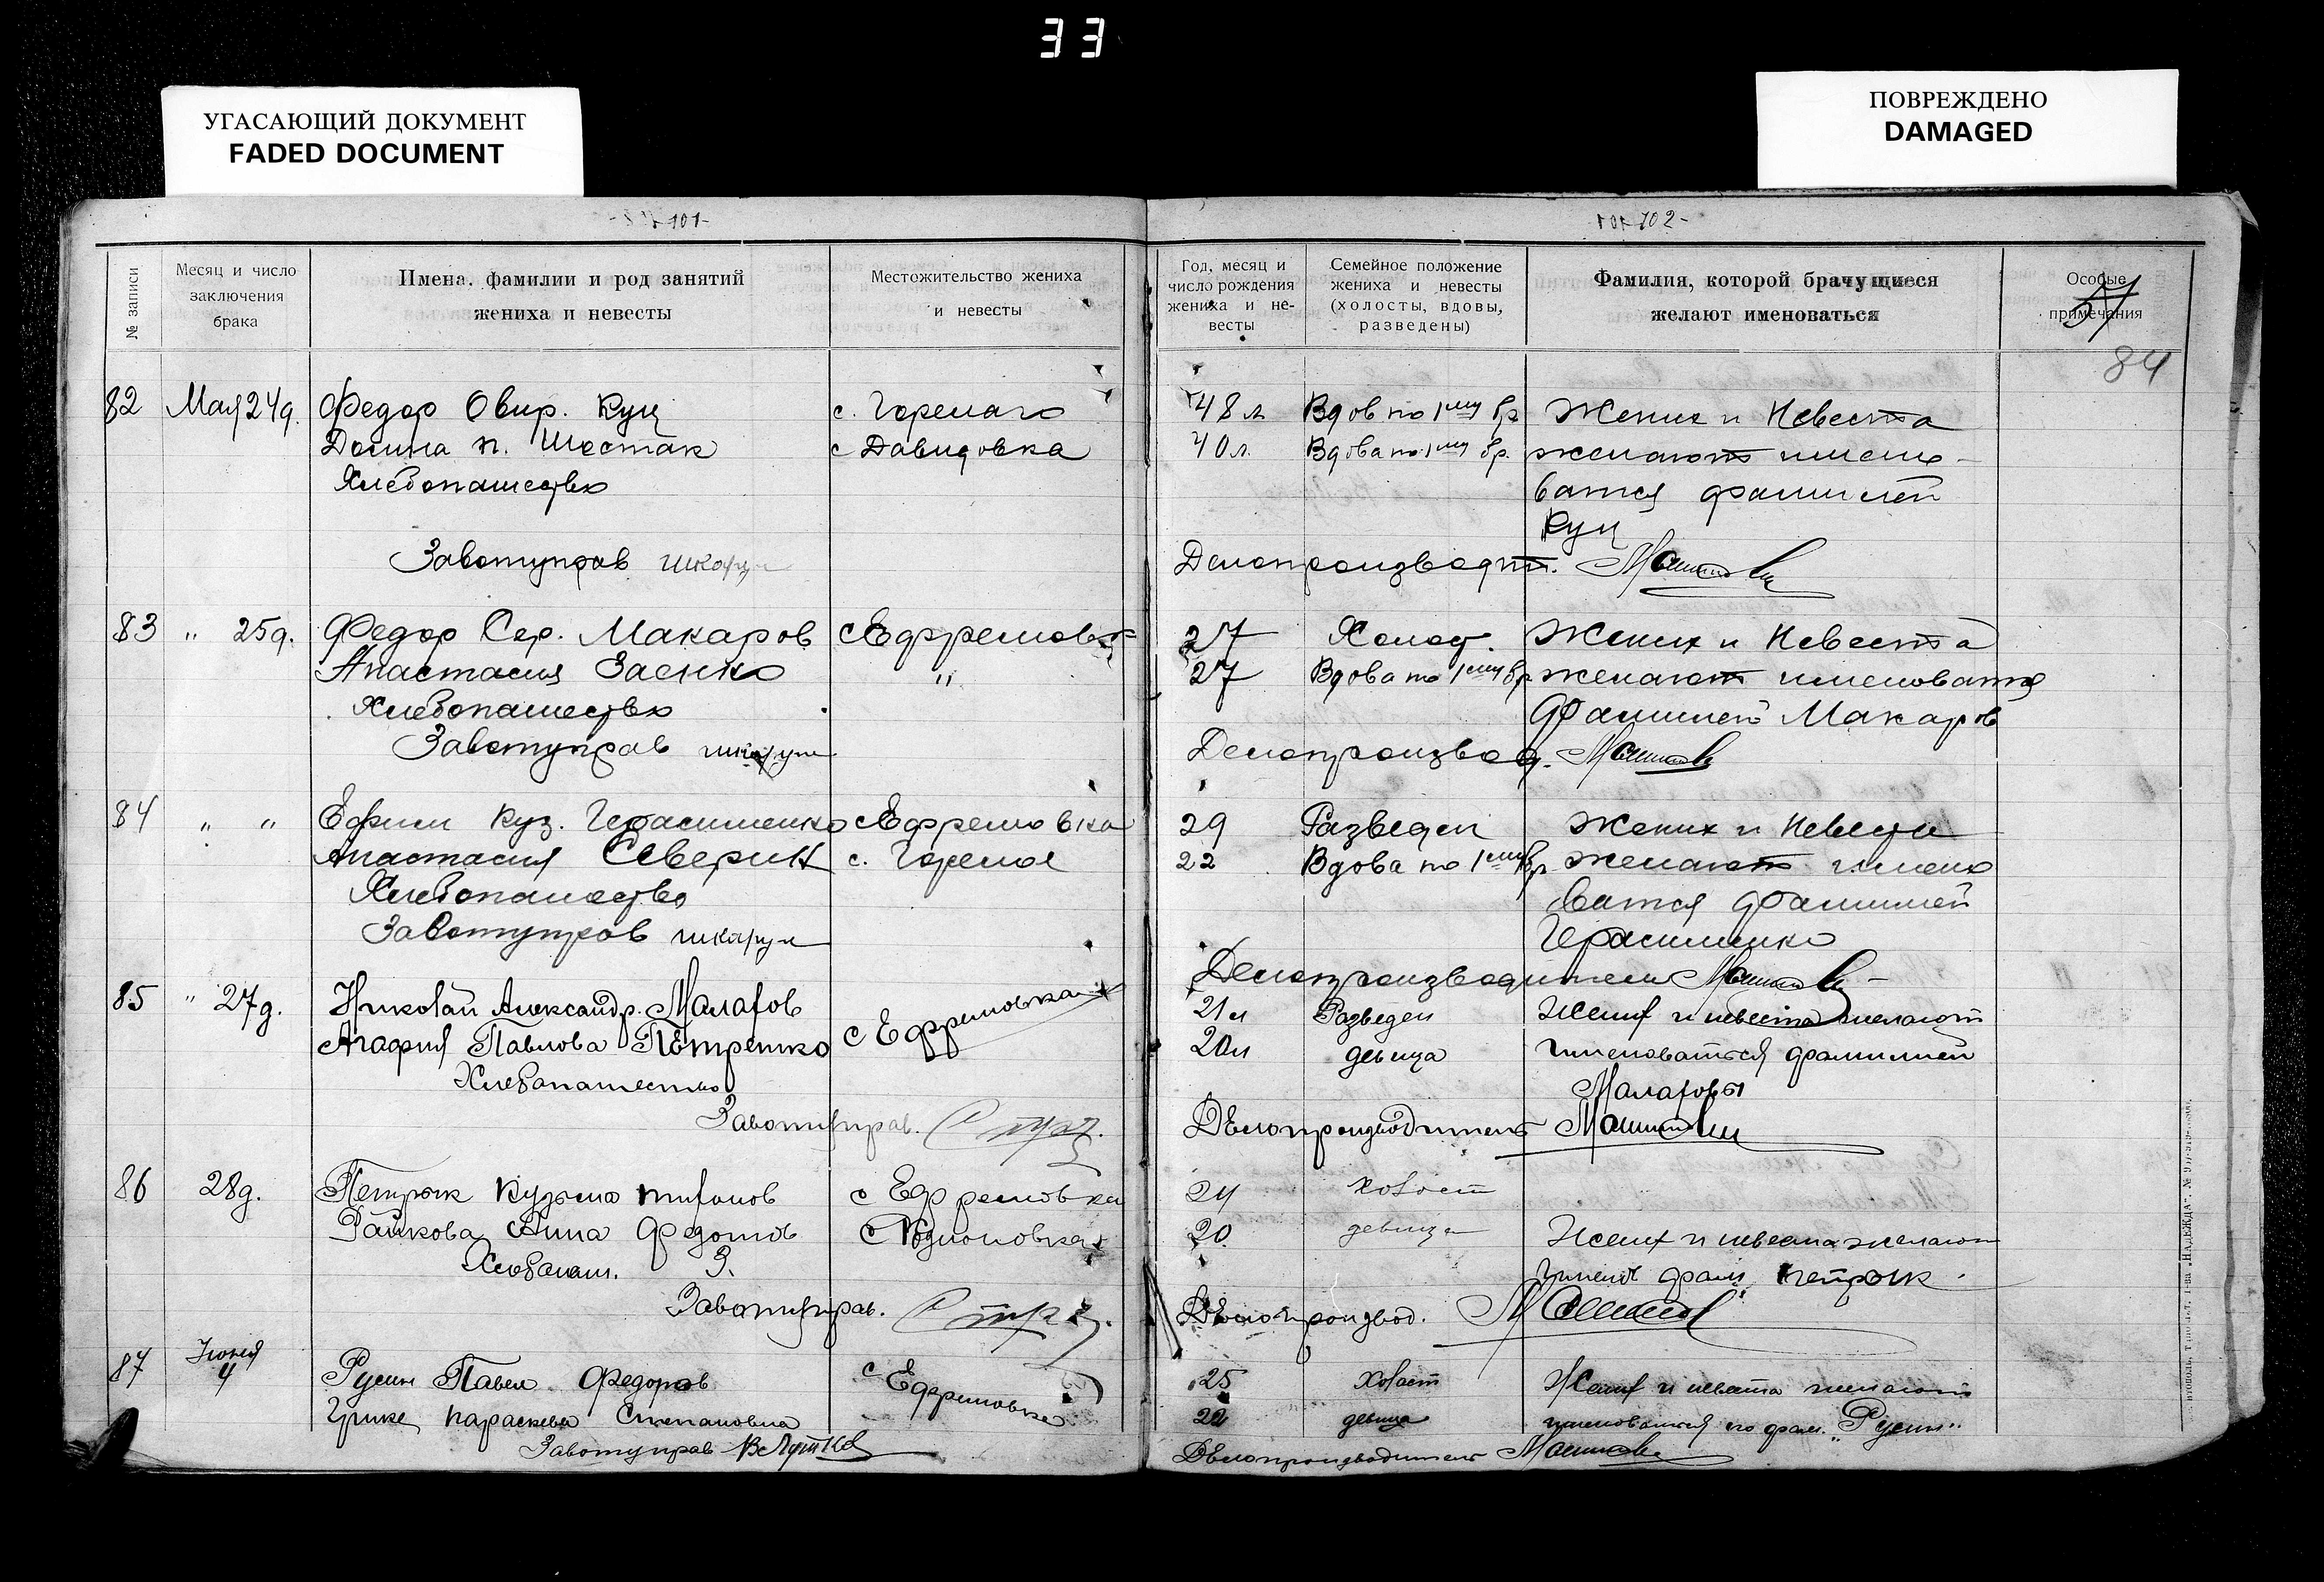 33
УГАСАЮЩИЙ ДОКУМЕНТ
FADED DOCUMENT
ПОВРЕЖДЕНО
DAMAGED
101-
102-
№ записи
Месяц и число заключения брака
Имена, фамилии и род занятий жениха и невесты
Местожительство жениха и невесты
Год, месяц и число рождения жениха и невесты
Семейное положение жениха и невесты (холосты, вдовы, разведены)
Фамилия, которой брачущиеся желают именоваться
Особые примечания
51
84
82 Мая 24д. Федор Овир. Куц с. Горелаго 48 л. Вдов по 1му бр Жених и Невеста
п. Шостак с Давидовка 40 л. Вдова по 1му бр. желают имено-
Хлебопашество ватся фамилией
Куц
Завотуправ Делопроизводт.
83 " 25д. Федор Сер. Макаров с Ефремовка 27 Холост. Жених и Невеста
Анастасия Заенко " 27 Вдова по 1му бр желают именоватся
Хлебопашество Фамилией Макаров
Завотуправ Делопроизвод.
84 " " Ефим Куз. Герасименко с Ефремовка 29 Разведен Жених и Невеста
Анастасия Северин с. Горелое 22 Вдова по 1му бр желают имено
Хлебопашество ватся фамилией
Завотуправ Герасименко
Делопроизводитель
85 " 27д. Николай Александр. Малахов с Ефремовка 21 л Разведен Жених и невеста желают
Агафия Павлова Петренко 20 л девица именоваться фамилией
Хлебопашество Малаховы
Завотуправ. Делопроизводитель
86 28д. Петрик Кузьма с Ефремовка 24 холост
Райкова Анна Федотов с Родионовка 20 девица Жених и невеста желают
Хлебопаш. З. имен фам. Петрик.
Завотуправ. Делопроизвод.
87 Июня 4 Русин Павел Федоров с Ефремовка 25 холост Жених и невеста желают
Параскева Степановна 22 девица именоваться по фам. "Русин"
Завотуправ Делопроизводитель